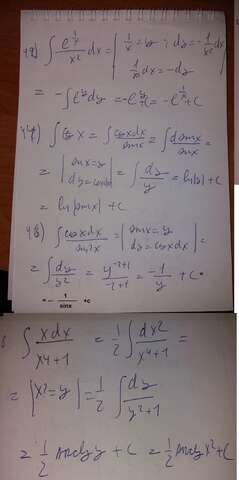 49) ∫ e^(1/x) / x² dx = | 1/x = y ; dy = -1/x² dx
1/x² dx = -dy |
= -∫e^y dy = -e^y + C = -e^(1/x) + C
∫ ctg x = ∫ cosx dx / sinx = ∫ dsinx / sinx =
= | sinx = y
dy = cosx dx | = ∫ dy / y = ln|y| + C =
= ln|sinx| + C
48) ∫ cosx dx / sin²x = | sinx = y
dy = cosx dx | =
= ∫ dy / y² = y^(-2+1) / -2+1 = -1/y + C =
= - 1/sinx + c
∫ xdx / x4+1 = 1/2 ∫ dx2 / x4+1 =
= | x² = y | = 1/2 ∫ dy / y²+1
= 1/2 arctg y + C = 1/2 arctg x² + C